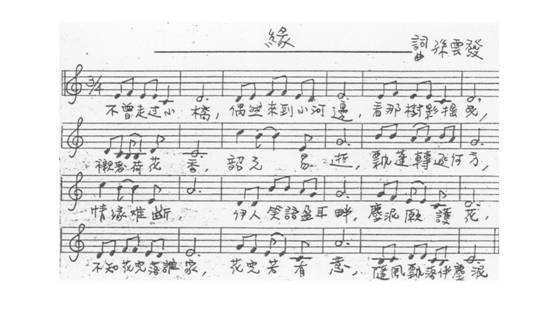 緣
詞曲 孫雲發
3/4
不曾走过小橋，偶然來到小河邊，看那樹影搖曳，
襯著荷花香，韶光易逝，飄蓬轉逐何方，
情緣难斷，伊人笑語盈耳畔，塵泥願護花，
不知花兒落誰家，花兒若有意，隨風飄落伊塵泥